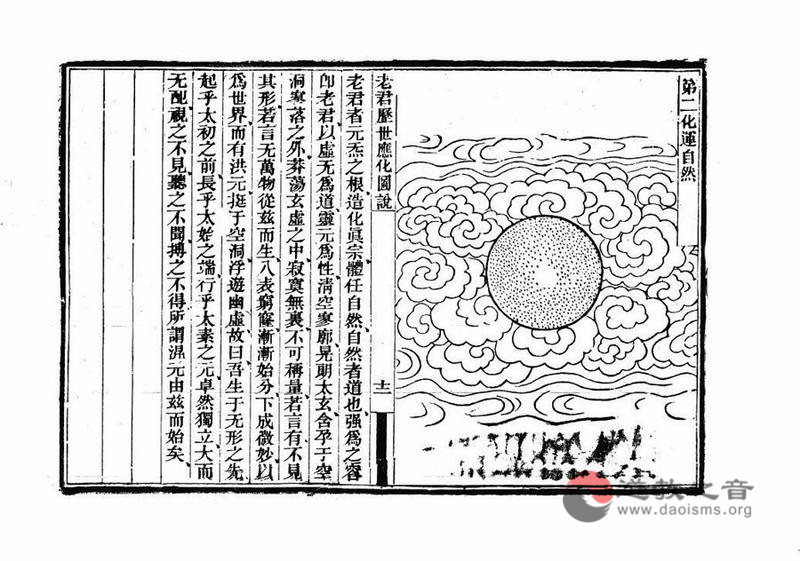 第二化運自然
老君歷世應化圖說
十二
老君者元炁之根造化眞宗體任自然自然者道也强爲之容
卽老君以虛无爲道靈元爲性淸空寥廓晃朗太玄含孕于空
洞寥落之外莽蕩玄虛之中寂寞無裏不可稱量若言有不見
其形若言无萬物從茲而生八表窮窿漸漸始分下成微妙以
爲世界而有洪元挺于空洞浮遊幽虛故曰吾生于无形之先
起乎太初之前長乎太始之端行乎太素之元卓然獨立大而
无配視之不見聽之不聞搏之不得所謂混元由茲而始矣
道教之音
www.daoisms.org